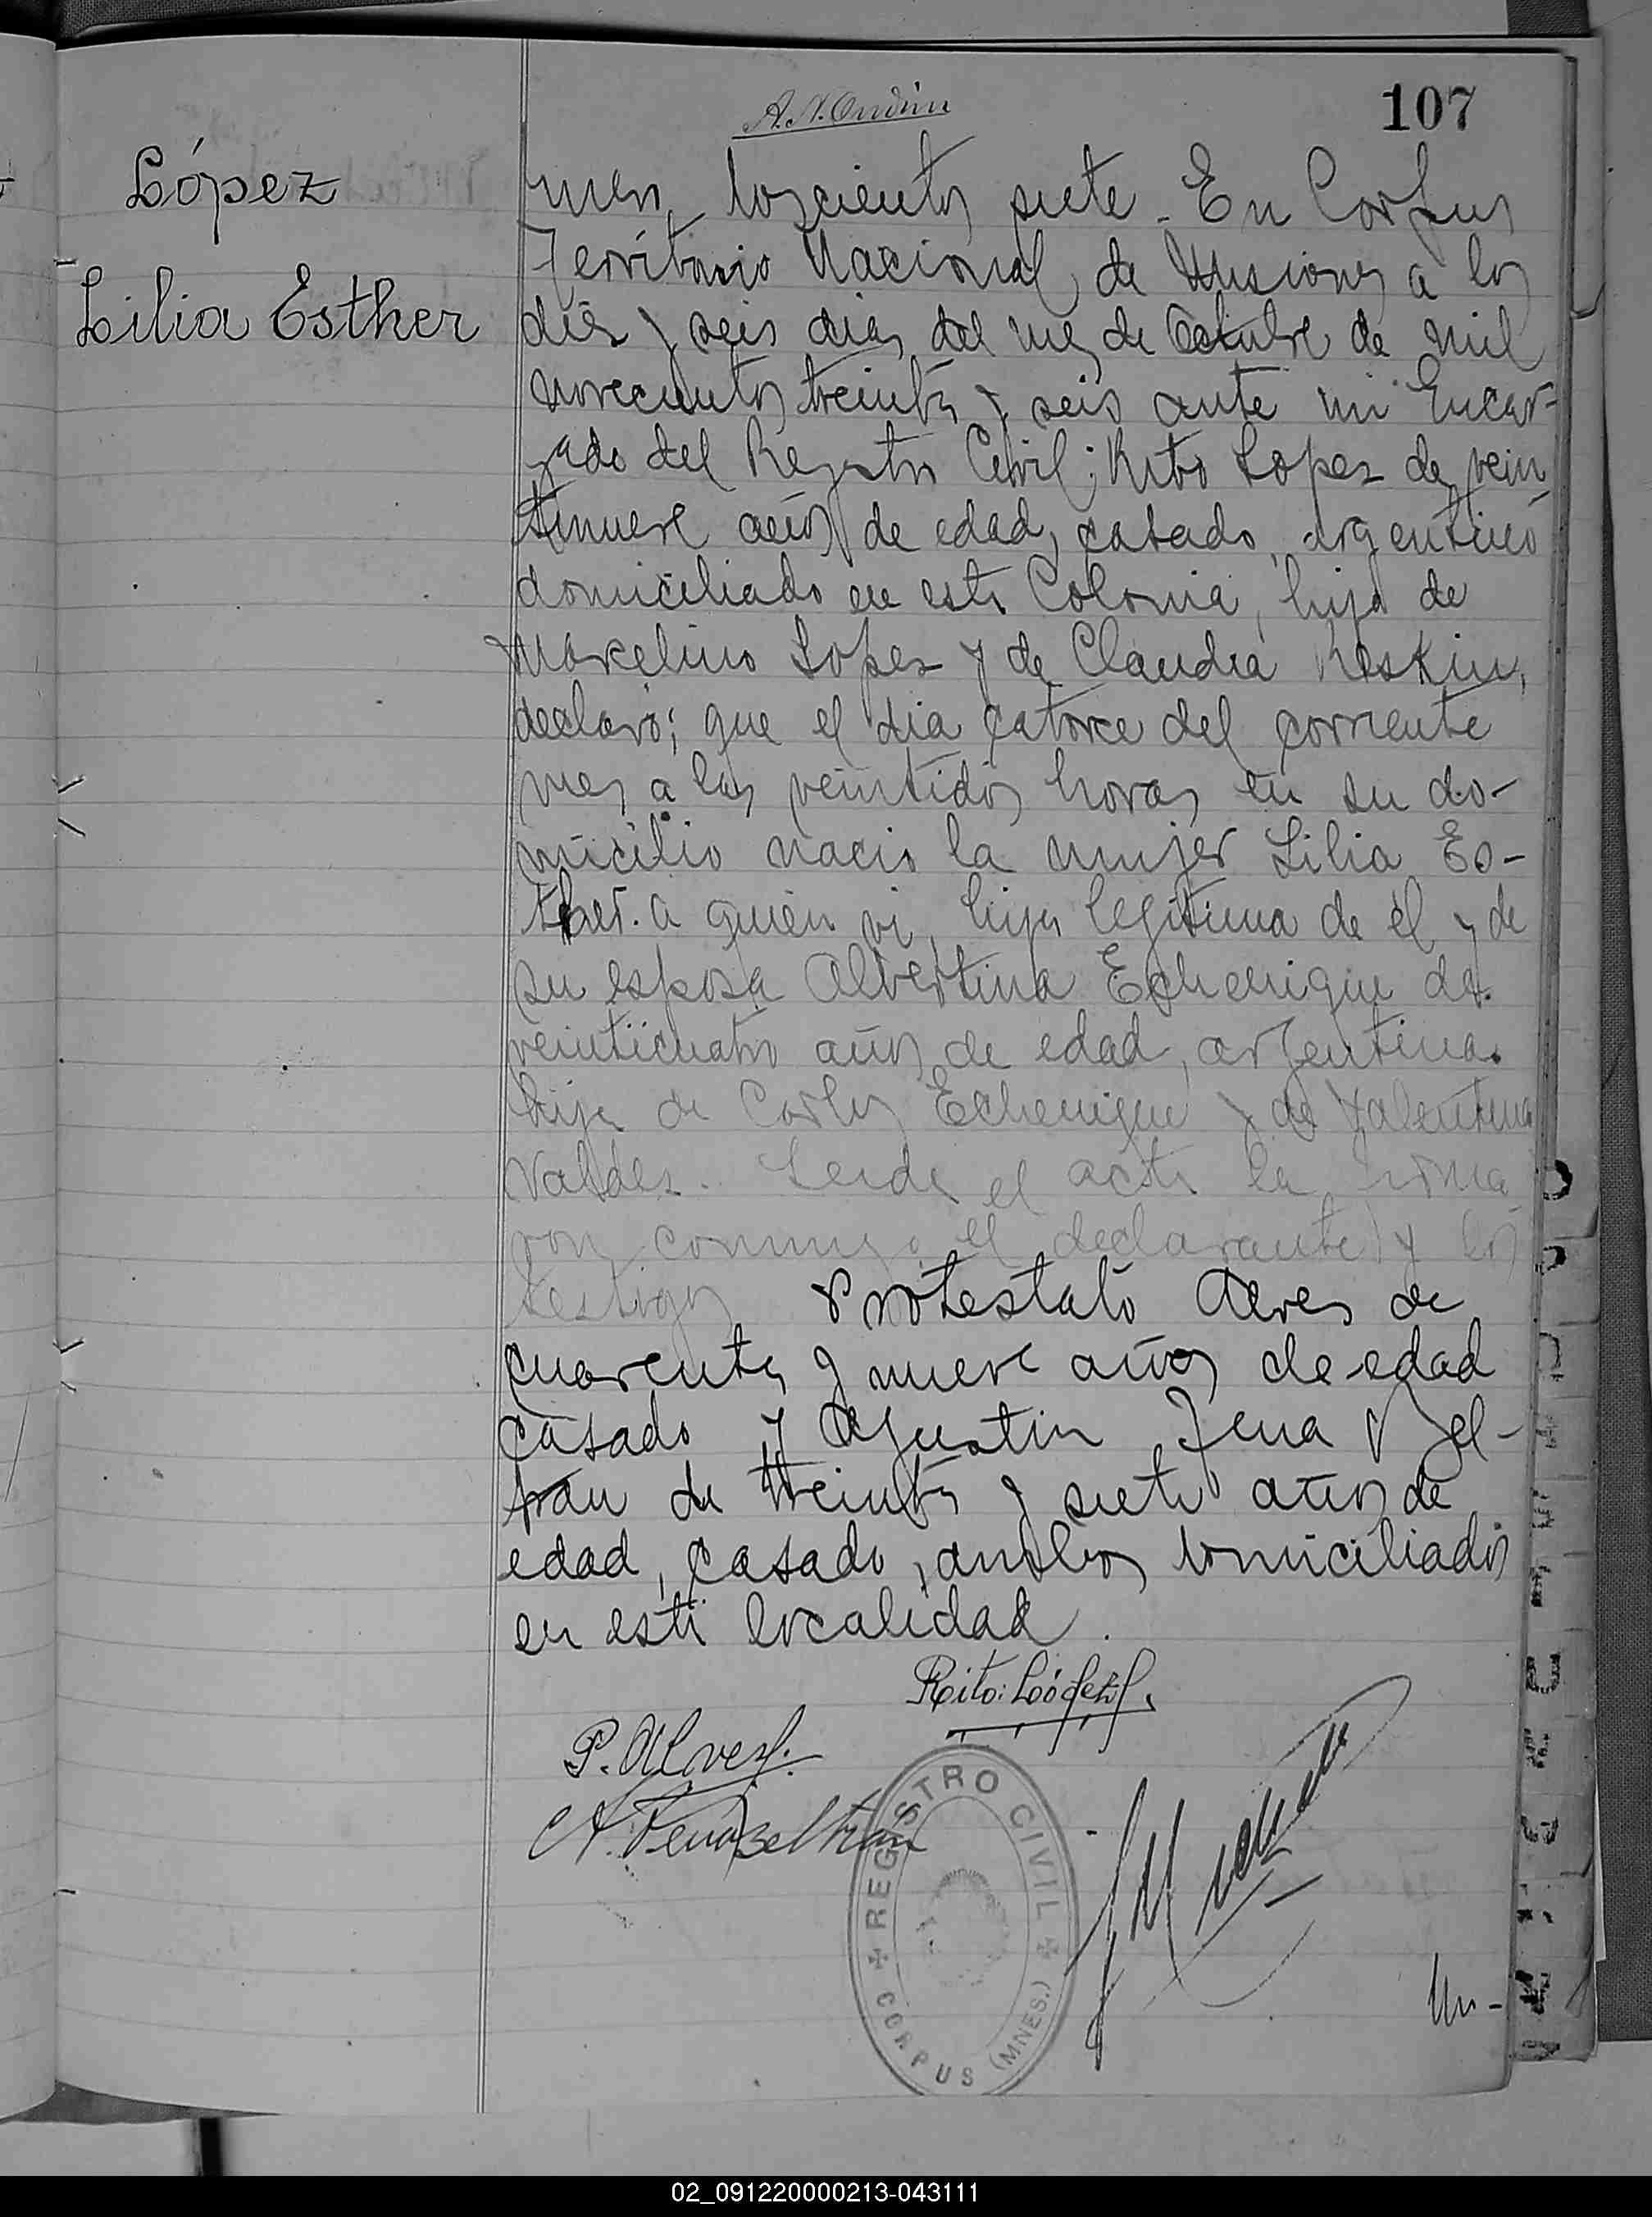 107
López
Lilia Esther
mero doscientos siete. En Corpus
Territorio Nacional de Misiones a los
diez y seis dias del mes de Octubre de mil
novecientos treinta y seis ante mi Encar-
gado del Registro Civil; Rito Lopez de vein
tinueve años de edad, casado, argentino
domiciliado en esta Colonia, hijo de
Marcelino Lopez y de Claudia
declaró; que el dia catorce del corriente
mes a las veintidos horas en su do-
micilio nacio la mujer Lilia Es-
ther. a quien vi, hija legitima de él y de
su esposa Albertina Echenique de
veinticuatro años de edad, argentina
hija de Carlos Echenique y de Valentina
Valdez. Leida el acta la firma
ron conmigo el declarante y los
testigos Protestato Alves de
cuarenta y nueve años de edad
casado y Agustin Pena Bel-
tran de treinta y siete años de
edad, casado, ambos domiciliados
en esta localidad.
Rito: López
P. Alvez.
A. Pena Beltran
REGISTRO CIVIL
CORPUS (MNES.)
02_091220000213-043111